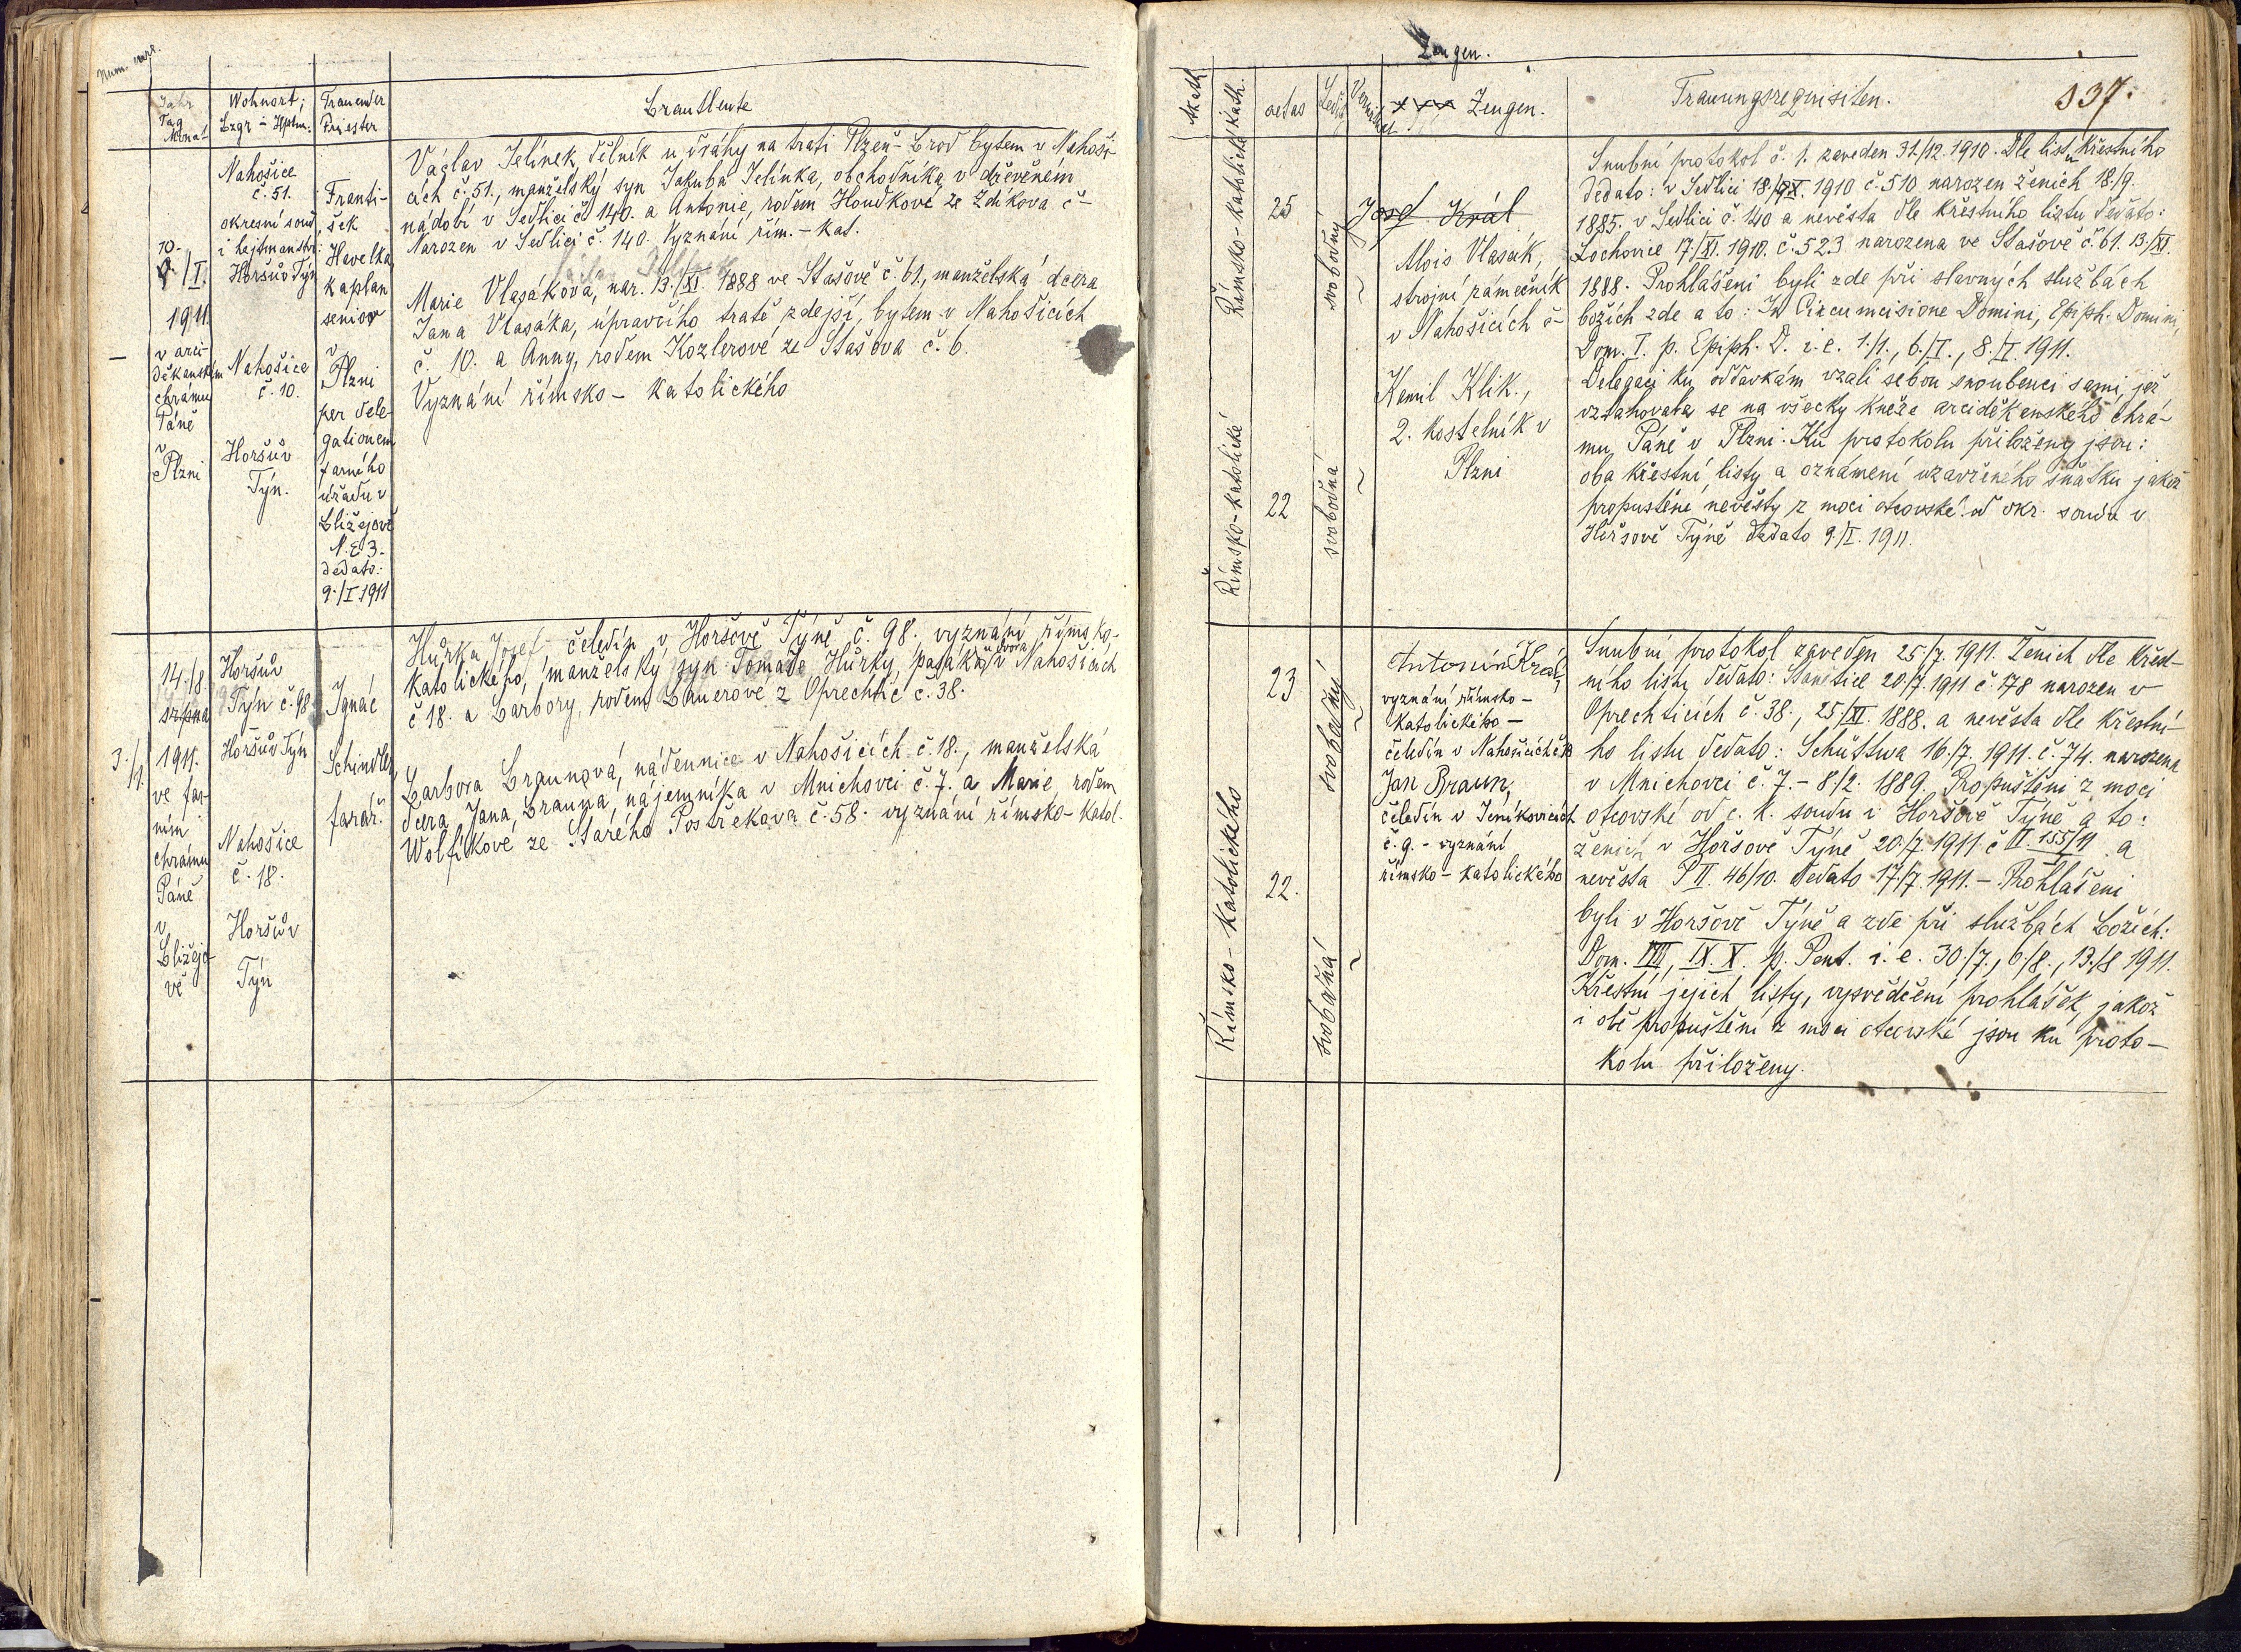 Num. curr.
Jahr
Tag
Monat
Wohnort;
Bzgr - Hptm.
Trauender
Priester
Brautleute
10.
/I.
1911.
v arci-
děkanském
chrámu
Páně
v
Plzni
Nahošice
č. 51.
okresní soud
i hejtmanství:
Horšův Týn
Nahošice
č. 10.
Horšův
Týn.
Franti-
šek
Havelka,
kaplan
senior
v
Plzni
per dele-
gationem
farního
úřadu v
Bližejově
N. E 3.
dedato:
9./I 1911
Václav Jelínek, dělník u dráhy na trati Plzeň-Brod bytem v Nahoši-
cích č. 51., manželský syn Jakuba Jelínka, obchodníka v dřevěném
nádobí v Sedlici č. 140. a Antonie, rodem Houdkové ze Zdíkova č-
Narozen v Sedlici č. 140. Vyznání řím.-kat.
Marie Vlasáková, nar. 13./XI. 1888 ve Stašově č. 61., manželská dcera
Jana Vlasáka, úpravčího tratě zdejší, bytem v Nahošicích
č. 10. a Anny, rodem Kozlerové ze Stašova č. 6.
Vyznání římsko-katolického
3./
14./8.
srpna
1911.
ve far-
ním
chrámu
Páně
v
Bližejo-
vě
Horšův
Týn č. 98
Horšův Týn
Nahošice
č. 18.
Horšův
Týn
Ignác
Schindler,
farář.
Hurka Josef, čeledín v Horšově Týně č. 98. vyznání římsko-
katolického, manželský syn Tomáše Hůrky, pasáka dvora v Nahošicích
č 18. a Barbory, rodem Bauerové z Oprechtic č. 38.
Barbora Braunová, nádennice v Nahošicích č. 18., manželská
dcera Jana Brauna, nájemníka v Mnichovci č. 7. a Marie, rodem
Wolfíkové ze Starého Postřekova č. 58. vyznání římsko-katol.
Zeugen.
337.
Akath.
Kath.
aetas
Ledig
Zeugen.
Trauungsrequisiten.
Římsko-katolické
25
svobodný
~
Josef Král
Alois Vlasák,
strojní zámečník
v Nahošicích č-
Kamil Klik.,
2. kostelník v
Plzni
Římsko-katolické
22
svobodná
~
Snubní protokol č. 1. zaveden 31./12. 1910. Dle listu křestního
dedato: v Sedlici 18./IX. 1910 č. 510. narozen ženich 18./9.
1885. v Sedlici č. 140 a nevěsta dle křestního listu dedato:
Lochovice 17/XI. 1910. č. 523 narozena ve Stašově č. 61. 13./XI.
1888. Prohlášeni byli zde při slavných službách
božích zde a to: In Circumcisione Domini, Epiph. Domini,
Dom. I. p. Epiph. D. i. e. 1./1., 6./I., 8./I 1911.
Delegaci ku oddavkám vzali sebou snoubenci sami, jež
vztahovala se na všecky kněze arciděkanského chrá-
mu Páně v Plzni. Ku protokolu přiloženy jsou:
oba křestní listy a oznámení uzavřeného sňatku jakož
propuštění nevěsty z moci otcovské od okr. soudu v
Horšově Týně dedato 9/I. 1911.
Římsko-katolického
23
svobodný
~
Antonín Král,
vyznání římsko-
katolického-
čeledín v Nahošicích č. 18
Jan Braun,
čeledín v Jeníkovicích
č. 9. - vyznání
římsko-katolického
22.
svobodná
~
Snubní protokol zaveden 25/7. 1911. Ženich dle křest-
ního listu dedato: Stanětice 20./7. 1911 č. 178 narozen v
Oprechticích č. 38., 25/XI. 1888. a nevěsta dle křestní-
ho listu dedato.: Schüttwa 16/7. 1911. č. 74. narozena
v Mnichovci č. 7. - 8/2. 1889. Propuštěni z moci
otcovské od c. k. soudu v Horšově Týně a to:
ženich v Horšově Týně 20./7. 1911. č II. 155/11 a
nevěsta P II. 46/10. dedato 17./7. 1911. - Prohlášeni
byli v Horšově Týně a zde při službách Božích:
Dom. VIII, IX. X. p. Pent. i. e. 30./7., 6./8., 13./8 1911.
Křestní jejich listy, vysvědčení prohlášek, jakož
i obě propuštění z moci otcovské jsou ku proto-
kolu přiloženy.